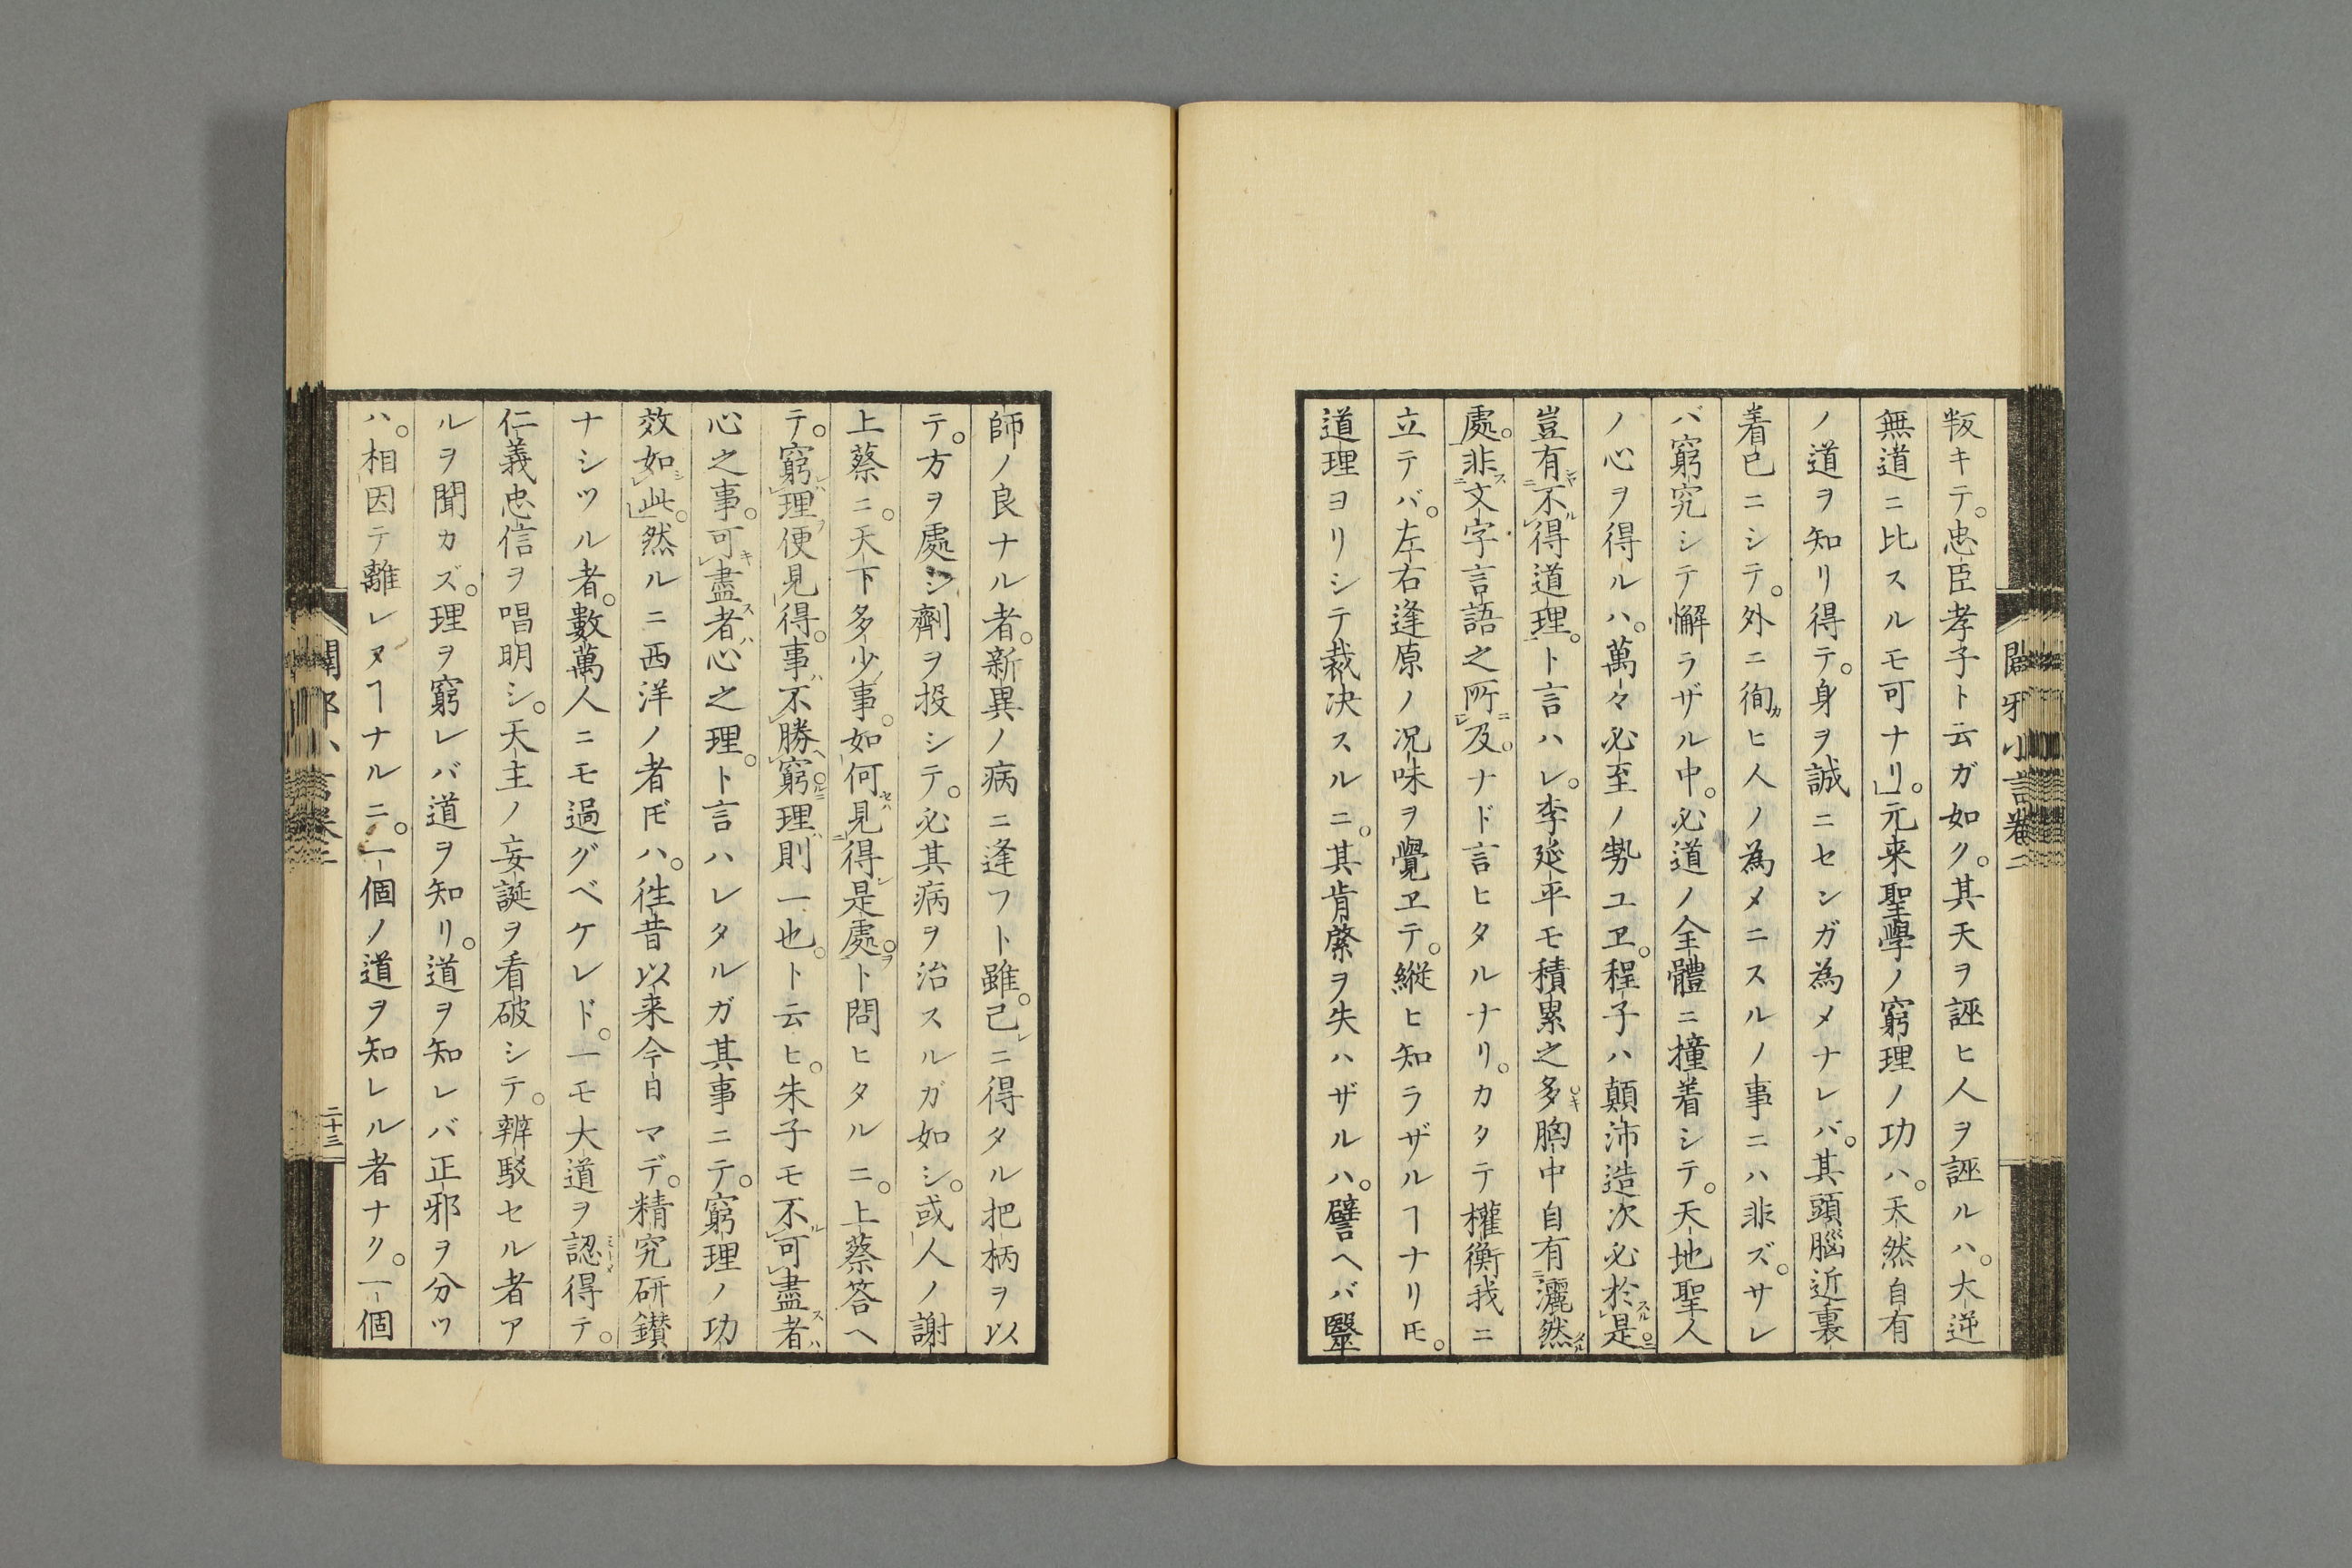 闢邪小言卷二
叛キテ。忠臣孝子ト云ガ如ク。其天ヲ誣ヒ人ヲ誣ルハ。大逆
無道ニ比スルモ可ナリ。」元来聖學ノ窮理ノ功ハ。天然自有
ノ道ヲ知リ得テ。身ヲ誠ニセンガ為メナレバ。其頭腦近裏
着已ニシテ。外ニ徇ヒ人ノ為メニスルノ事ニハ非ズ。サレ
バ窮究シテ懈ラザル中。必道ノ全體ニ撞着シテ。天地聖人
ノ心ヲ得ルハ。萬々必至ノ勢ユヱ。程子ハ顛沛造次必於是
豈有不得道理。ト言ハレ。李延平モ積累之多胸中自有灑然
處。非文字言語之所及。ナド言ヒタルナリ。カタテ權衡我ニ
立テバ。左右逢原ノ況味ヲ覺ヱテ。縱ヒ知ラザルヿナリ𪜈。
道理ヨリシテ裁決スルニ。其肯綮ヲ失ハザルハ。譬ヘバ毉
師ノ良ナル者。新異ノ病ニ逢フト雖。己ニ得タル把柄ヲ以
テ。方ヲ處シ劑ヲ投シテ。必其病ヲ治スルガ如シ。或人ノ謝
上蔡ニ。天下多少事。如何見得是處。ト問ヒタルニ。上蔡答ヘ
テ。窮理便見得。事不勝窮理則一也。ト云ヒ。朱子モ不可盡者
心之事。可盡者心之理。ト言ハレタルガ其事ニテ。窮理ノ功
效如此。然ルニ西洋ノ者𪜈ハ。徃昔以来今日マデ。精究研鑚
ナシツル者。數萬人ニモ過グベケレド。一モ大道ヲ認得テ。
仁義忠信ヲ唱明シ。天主ノ妄誕ヲ看破シテ。辨駁セル者ア
ルヲ聞カズ。理ヲ窮レバ道ヲ知リ。道ヲ知レバ正邪ヲ分ツ
ハ。相因テ離レヌヿナルニ。一個ノ道ヲ知レル者ナク。一個
二十三